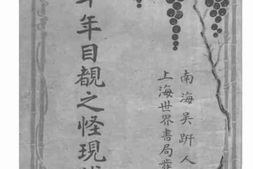 南海吳趼人
上海世界書局
十年目覩之怪現